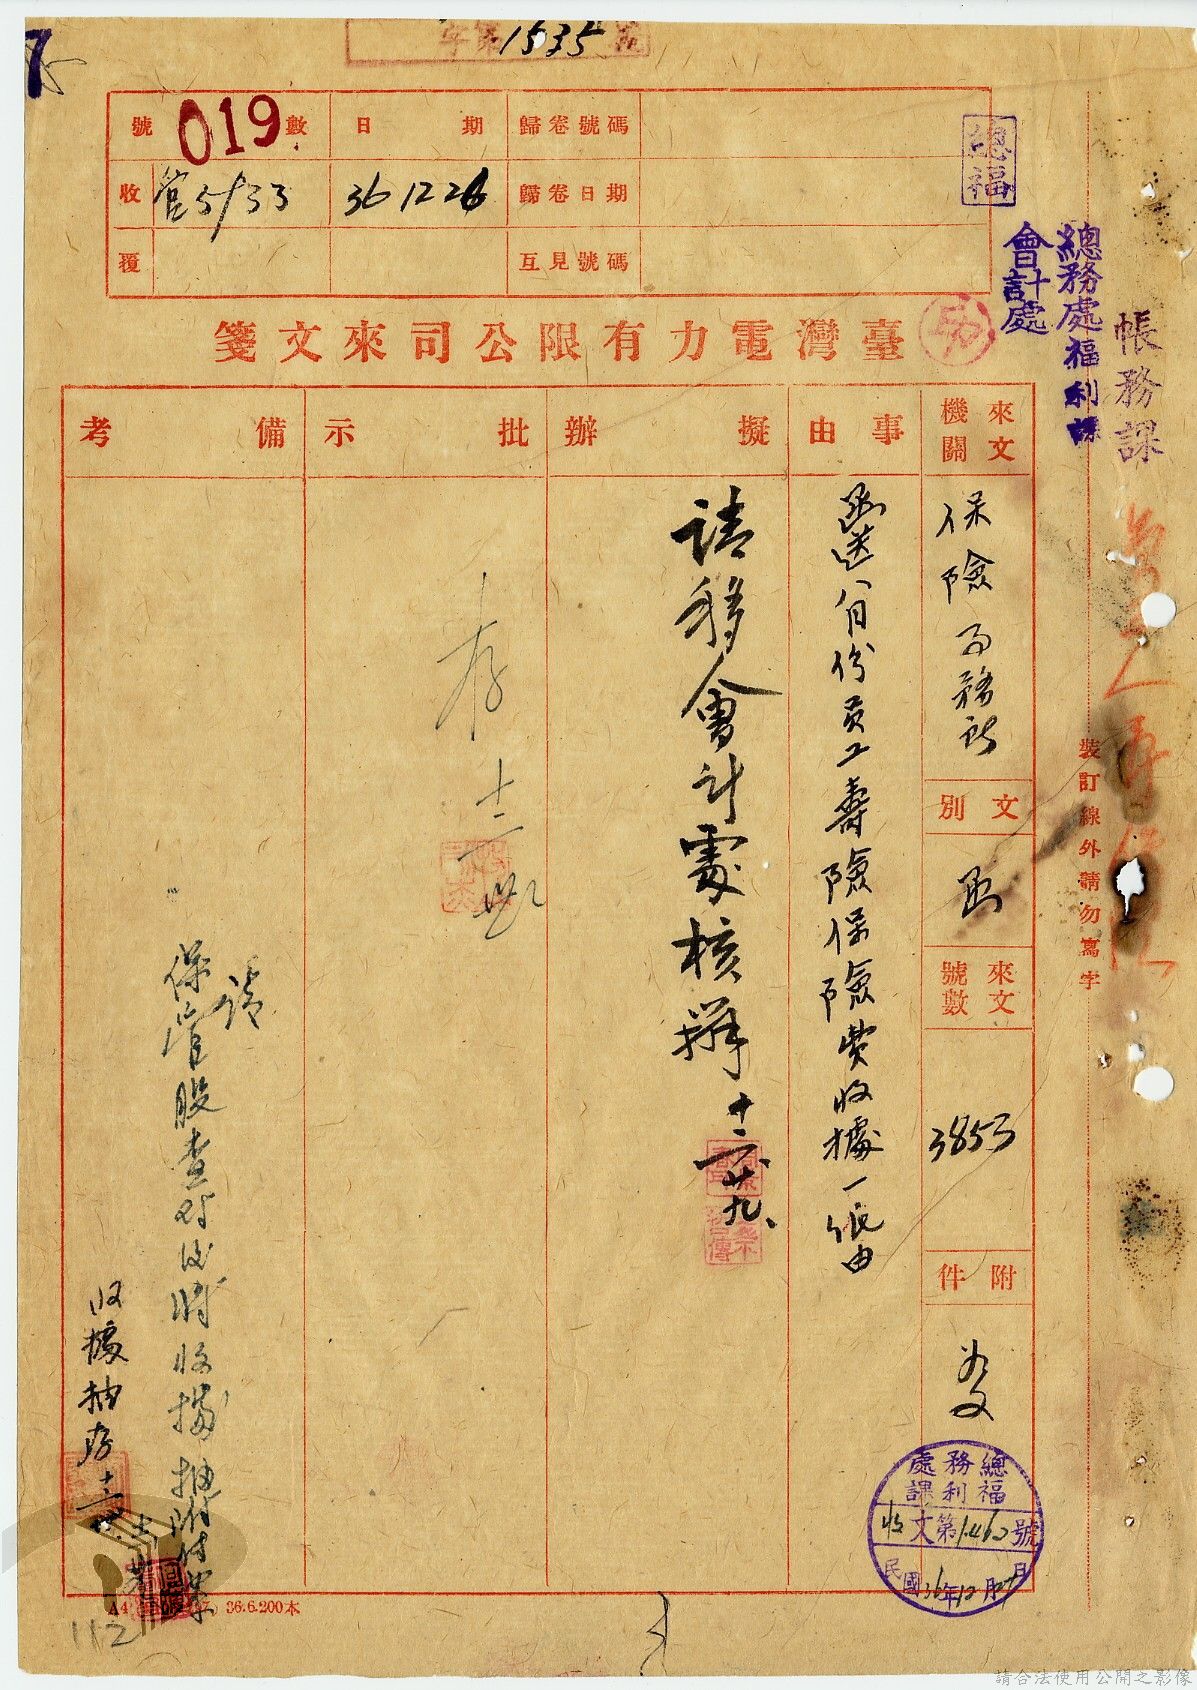 字第1535號
號 019 數
日期
歸卷號碼
收
管5133
36 12 26
歸卷日期
覆
互見號碼
總福
總務處福利課
會計處
帳務課
臺灣電力有限公司來文箋
來文機關
保險事務所
文別
函
來文號數
3853
附件
如文
事由
函送八月份員工壽險保險費收據一紙由
擬辦
請移會計處核辦 十二、廿九、
批示
存 十二
備考
請
保管股查對後將收據抽附傳票
收據抽存
裝訂線外請勿寫字
總務處
福利課
收文第1462號
民國36年12月27日
36.6.200本
112
請合法使用公開之影像